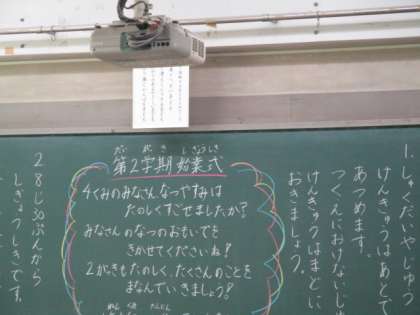 1.しゅくだいや じゆう
けんきゅうはあとで
あつめます。
つくえにおけないじゆ
けんきゅうはまどに
おきましょう。
だい がっ き しぎょうしき
第2学期始業式
4くみのみなさん なつやすみは
たのしくすごせましたか?
みなさんのなつのおもいでを
きかせてくださいね!
2がっきもたのしく、たくさんのことを
まなんでいきましょう!
2 8じ30ぷんから
しぎょうしきです。